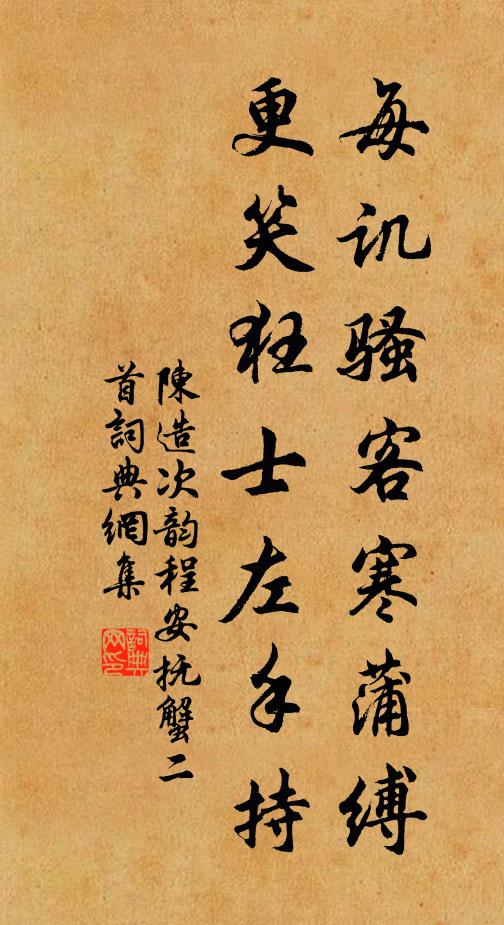 每讥骚客寒蒲缚
更笑狂士左手持
陳造次韵程安抚蟹二
首詞典網集
詞典网印